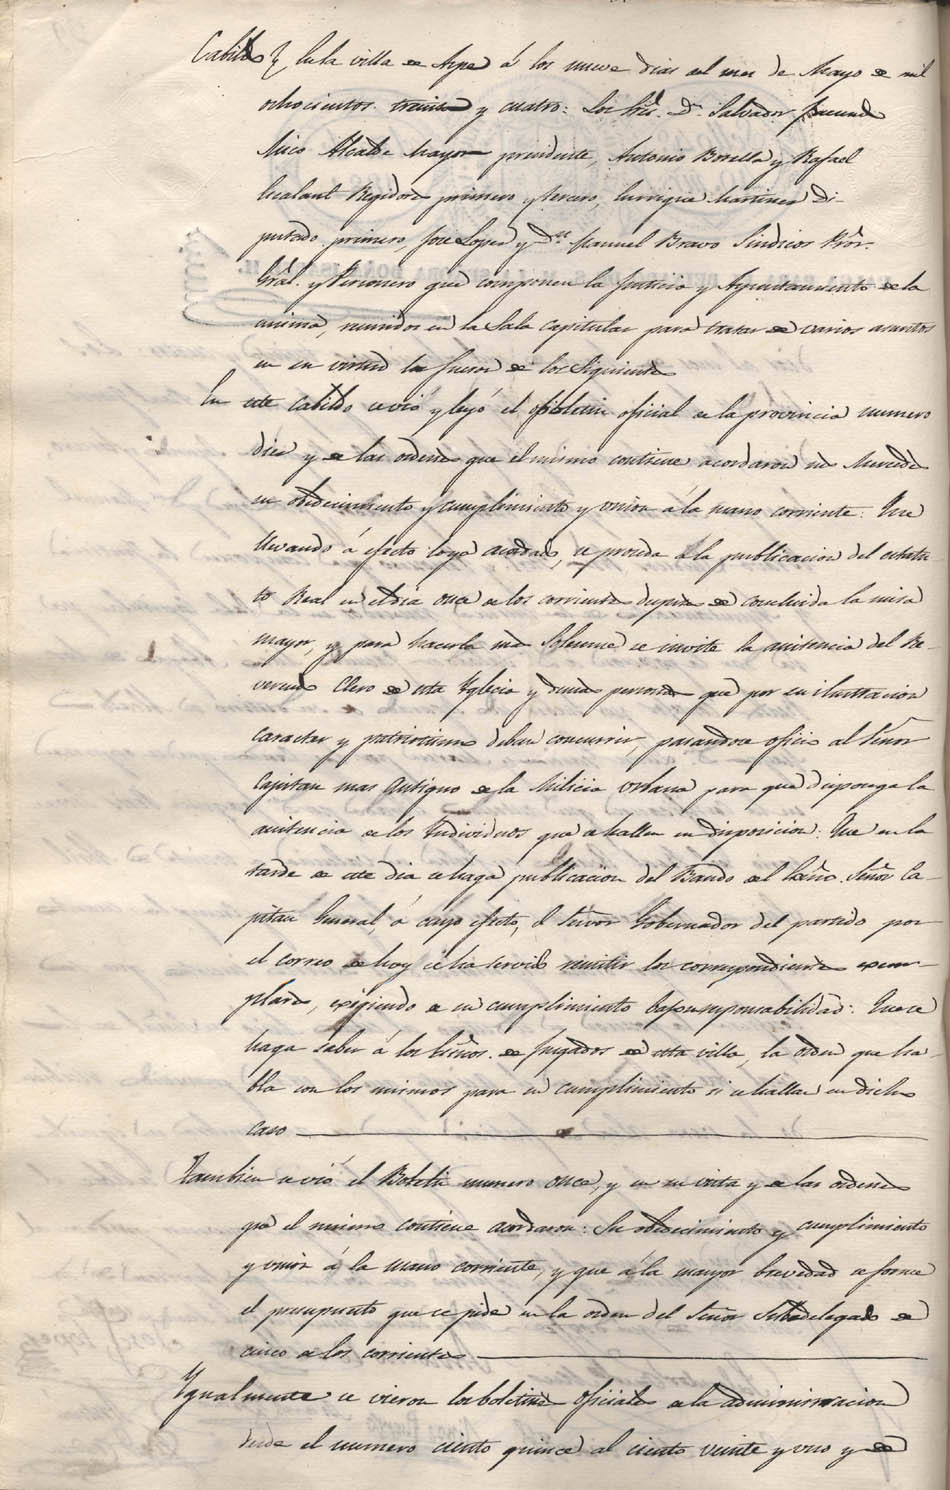 Cabildo En la villa de Aspe á los nueve dias del mes de Mayo de mil
ochocientos treinta y cuatro: Los Sres. Dn. Salvador
Mico Alcalde Mayor presidente, Antonio Botella y Rafael
Alcalant Regidores primero y tercero, Enrrique Martinez Di-
putado primero, Jose Lopez y Dn. Manuel Bravo Sindicos Pror.
Gral. y Personero que componen la Justicia y Ayuntamiento de la
misma, reunidos en la Sala Capitular para tratar de varios asuntos
en su virtud lo fueron de los Siguientes
En este Cabildo se vió y leyó el boletin oficial de la provincia numero
diez y de las ordenes que el mismo contiene acordaron su
obedecimiento y cumplimiento y union á la mano corriente: Que
llevando á efecto lo ya acordado, se proceda á la publicacion del estatu-
to Real en el dia once de los corrientes despues de concluida la misa
mayor, y para hacerla mas Solemne se invite la asistencia del Re-
verendo Clero de esta Yglecia y demas personas que por su ilustracion
caracter y patriotismo deban concurrir, pasandose oficio al Señor
Capitan mas Antiguo de la Milicia Urbana para que disponga la
asistencia de los Individuos que se hallen en disposicion: Que en la
tarde de este dia se haga publicacion del Bando del Exmo. Señor Ca-
pitan General, á cuyo efecto, el Señor Gobernador del partido por
el correo de hoy se ha servido remitir los correspondientes exem-
plares, exigiendo de su cumplimiento bajo su responsabilidad: Que se
haga saber á los Escnos. de Juzgados de esta villa, la orden que ha-
bla con los mismos para su cumplimiento si se hallan en dicho
caso
Tambien se vió el Boletin numero once, y en su vista y de las ordenes
que el mismo contiene acordaron: Su obedecimiento y cumplimiento
y union á la mano corriente, y que á la mayor brevedad se forme
el presupuesto que se pide en la orden del Señor Subdelegado de
cinco de los corrientes
Ygualmente se vieron los boletines oficiales de la administracion
desde el numero ciento quince al ciento veinte y uno y de